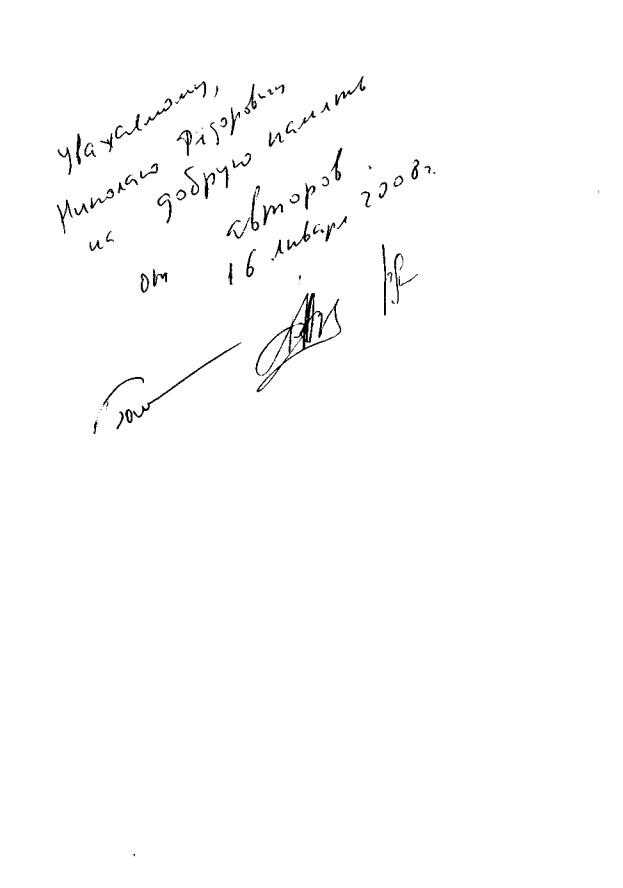 Уважаемому,
Николаю Фёдоровичу
на добрую память
от авторов.
16 января 2008 г.